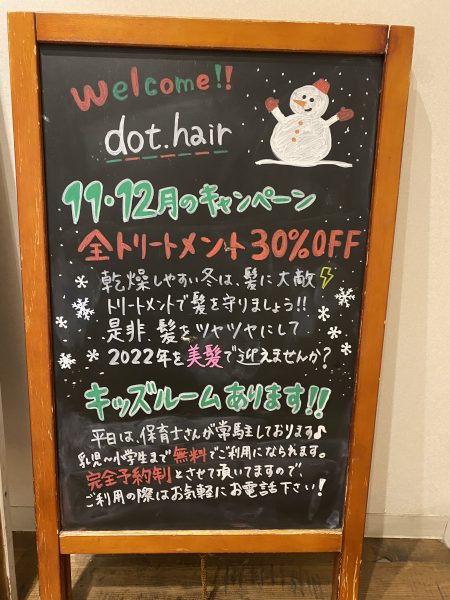 Welcome!!
dot.hair
11・12月のキャンペーン
全トリートメント30%OFF
乾燥しやすい冬は、髪に大敵
トリートメントで髪を守りましょう!!
是非髪をツヤツヤにして
2022年を美髪で迎えませんか?
キッズルームあります!!
平日は、保育士さんが常駐しております♪
乳児〜小学生まで無料でご利用になられます。
完全予約制とさせて頂いてますので、
ご利用の際はお気軽にお電話下さい!